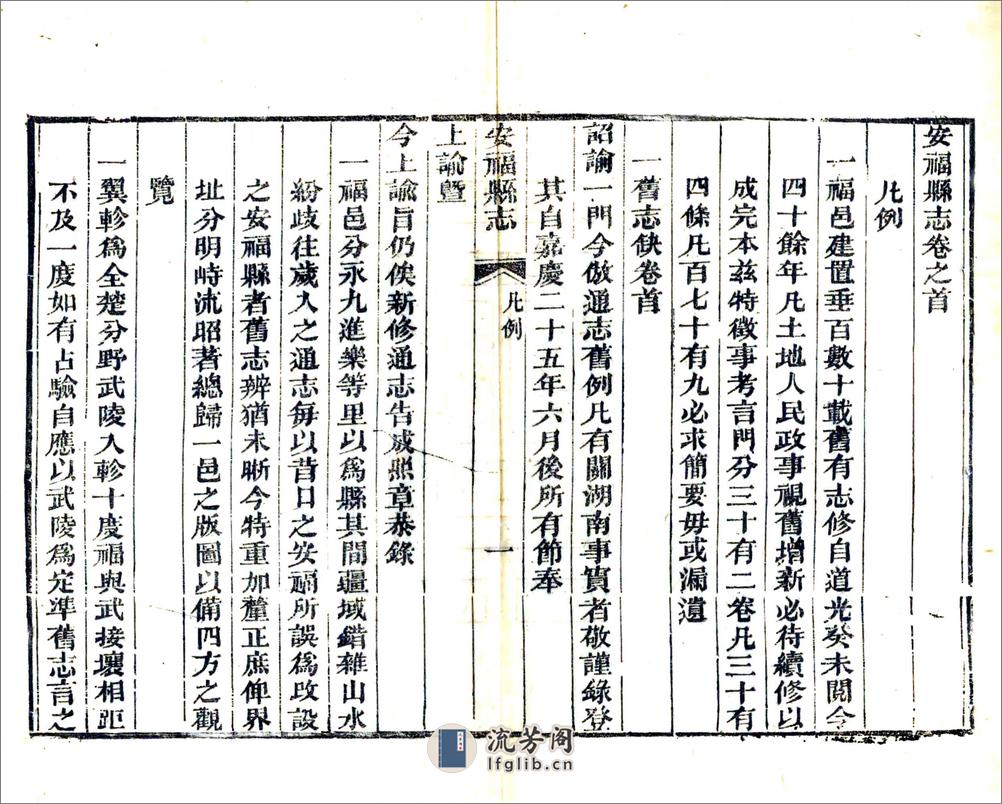 安福縣志卷之首
凡例
一福邑建置垂百數十載舊有志修自道光癸未閱今
四十餘年凡土地人民政事視舊增新必待續修以
成完本兹特徵事考言門分三十有二卷凡三十有
四條凡百七十有九必求簡要毋或漏遺
一舊志缺卷首
詔諭一門今倣通志舊例凡有關湖南事實者敬謹錄登
其自嘉慶二十五年六月後所有節奉
安福縣志 凡例 一
上諭暨
今上諭旨仍俟新修通志告成照章恭錄
一福邑分永九進樂等里以爲縣其間疆域錯雜山水
紛歧往歲入之通志每以昔日之安福所誤爲改設
之安福縣者舊志辨猶未晰今特重加釐正庶俾界
址分明峙流昭著總歸一邑之版圖以備四方之觀
覽
一翼軫爲全楚分野武陵入軫十度福與武接壤相距
不及一度如有占驗自應以武陵爲定準舊志言之
流芳阁
lfglib.cn